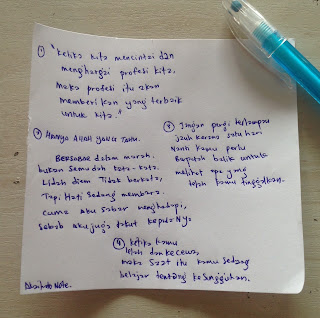 ① "Ketika kita mencintai dan
menghargai profesi kita,
maka profesi itu akan
memberikan yang terbaik
untuk kita."
② Hanya Allah yang Tahu.
BERSABAR dalam marah,
bukan semudah kata-kata.
Lidah diam Tidak berkata,
Tapi Hati Sedang membara.
Cuma Aku Sabar menghadapi,
Sebab Aku juga takut kepadaNya
③ Jangan pergi terlampau
jauh kerana satu hari
nanti kamu perlu
Berpatah balik untuk
melihat apa yang
telah kamu tinggalkan.
④ Ketika kamu
lelah dan kecewa,
maka Saat itu kamu Sedang
belajar tentang kesungguhan.
Note.